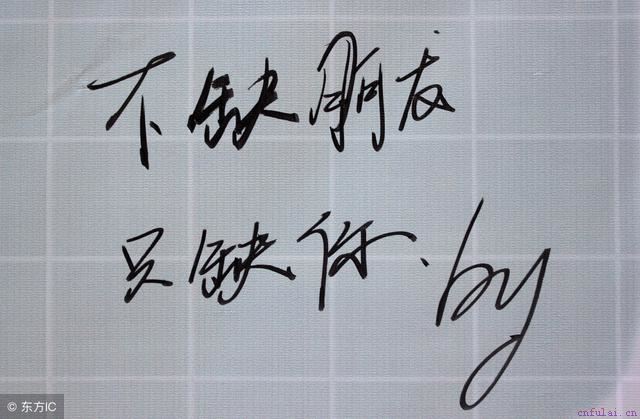 不缺朋友
只缺你.by
© 东方IC
cnfulai.cn